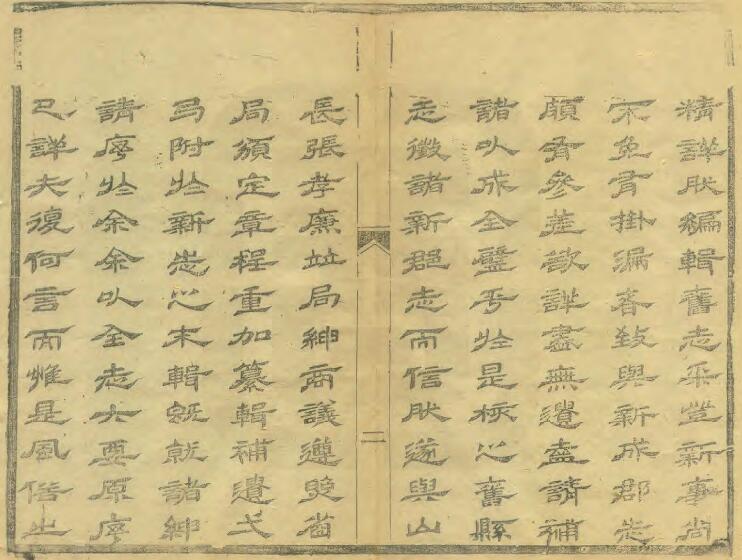 精詳肰編輯舊志采登新事尚
不免有掛漏者致與新成郡志
頗有參差欲詳盡無遺盍請補
諸以成全璧乎於是核之舊縣
志徵諸新郡志而信肰遂與山
二
長張孝廉竝局紳商議遵照省
局頒定章程重加纂輯補遺弌
弓附於新志之末輯既就諸紳
請序於余余以全志大要原序
已詳夫復何言而惟是風俗之